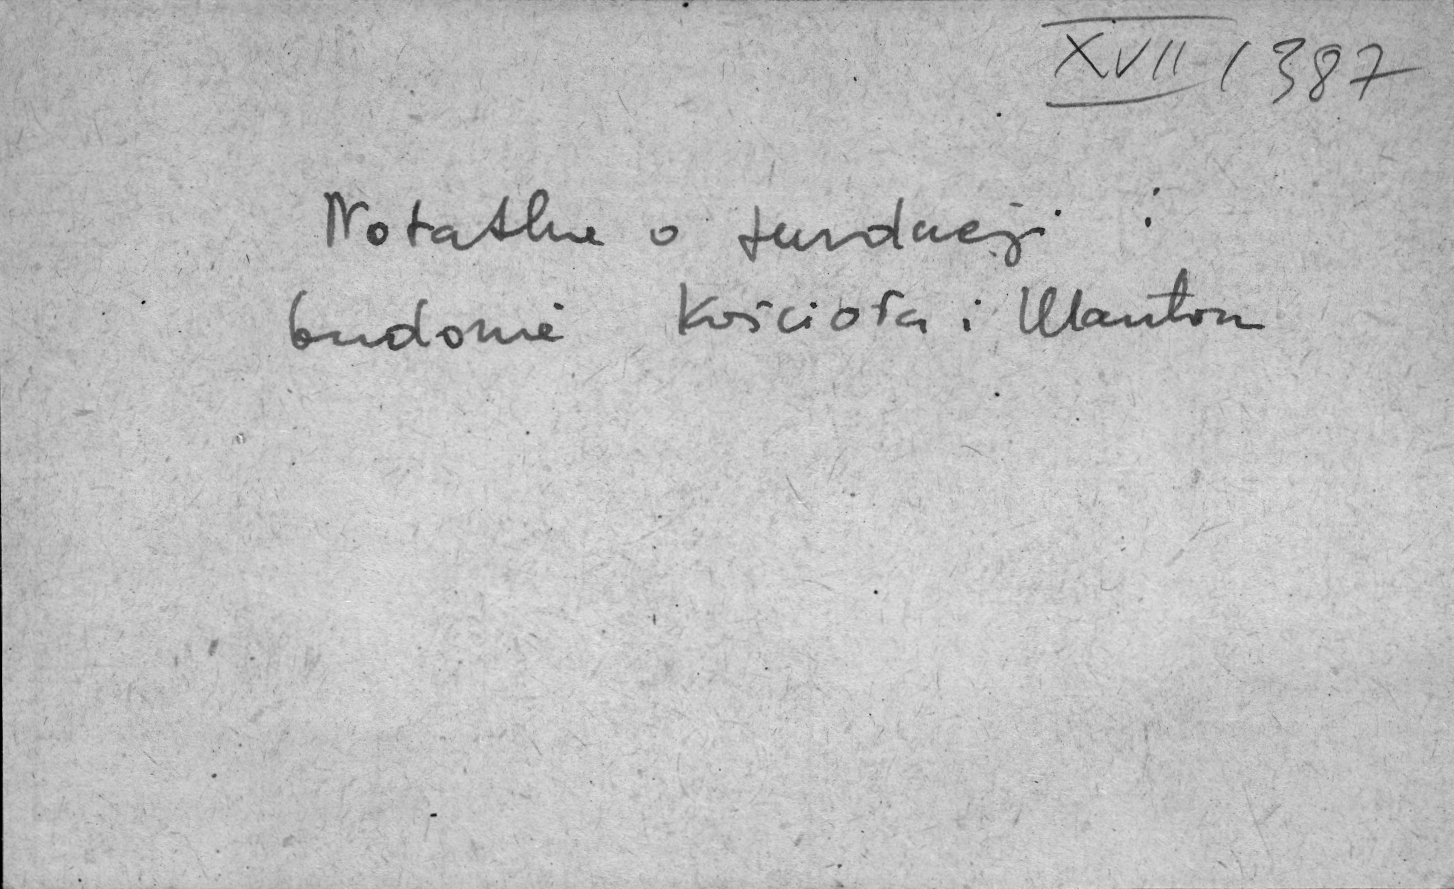 XVII / 387
Notatka o fundacji i
budowie kościoła i klasztoru